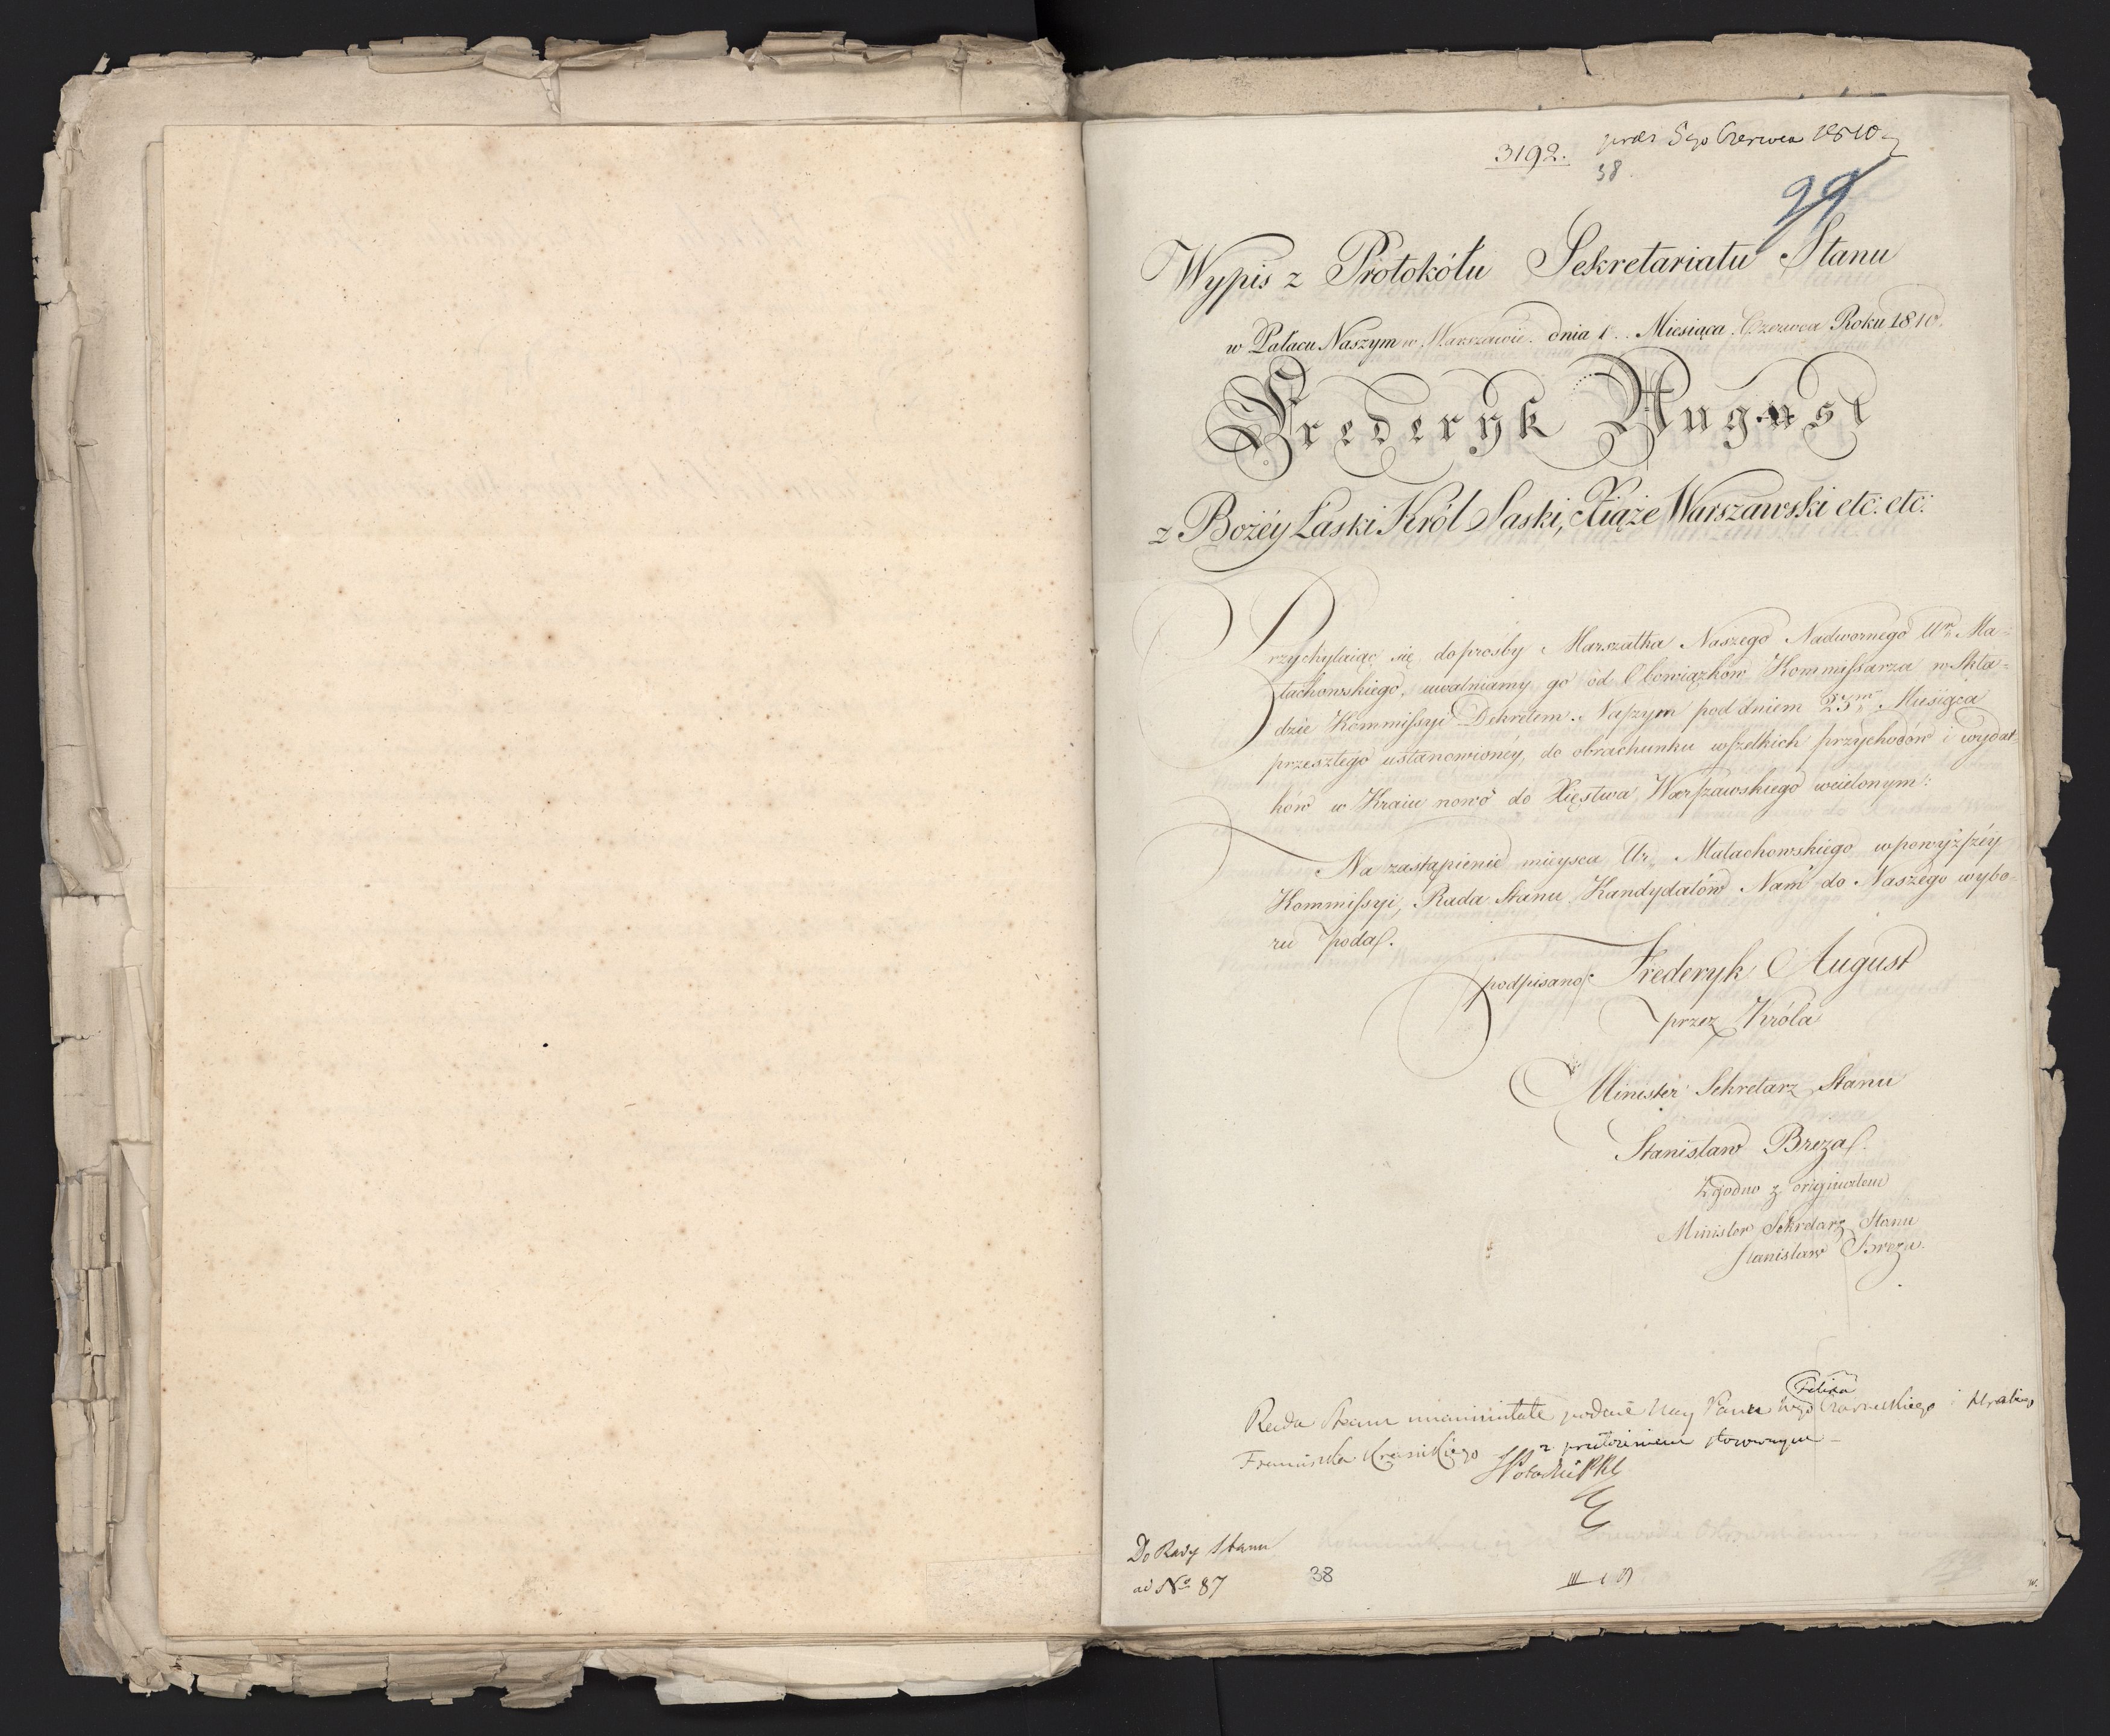 3192. 5go Czerwca 1810
38.
29
Wypis z Protokółu Sekretariatu Stanu
w Pałacu Naszym w Warszawie dnia 1. Miesiąca Czerwca Roku 1810.
Frederyk August
z Bożéy Łaski Król Saski, Xiąże Warszawski etc: etc:
Przychylaiąc się do prośby Marszałka Naszego Nadwornego Ur. Ma=
łachowskiego, uwalniamy go od Obowiązków Kommissarza w Skła=
dzie Kommissyi Dekretem Naszym pod dniem 25m Miesiąca
przeszłego ustanowionéy, do obrachunku wszelkich przychodów i wydat=
ków w Kraiu nowo do Xięstwa Warszawskiego wcielonym:
Na zastąpienie mieysca Ur. Małachowskiego w powyższéy
Kommissyi, Rada Stanu Kandydatów Nam do Naszego wybo=
ru poda.
podpisano: Frederyk August
przez Króla
Minister Sekretarz Stanu
Stanisław Breza.
Zgodno z originałem
Minister Sekretarz Stanu
Stanisław Breza.
Felixa
Rada Stanu podaie Nay Panu Wgo i Hrabiego
Franciszka Krasickiego z
Do Rady Stanu
ad No 87
38